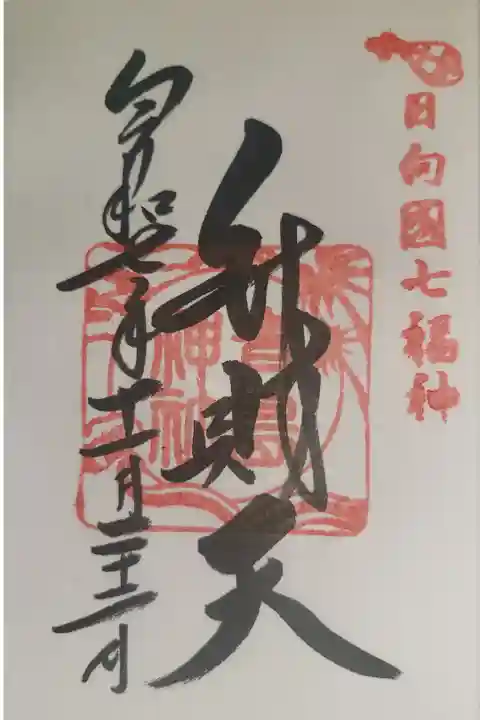 日向國七福神
弁財天
青島
神社
令和七年十一月二十二日